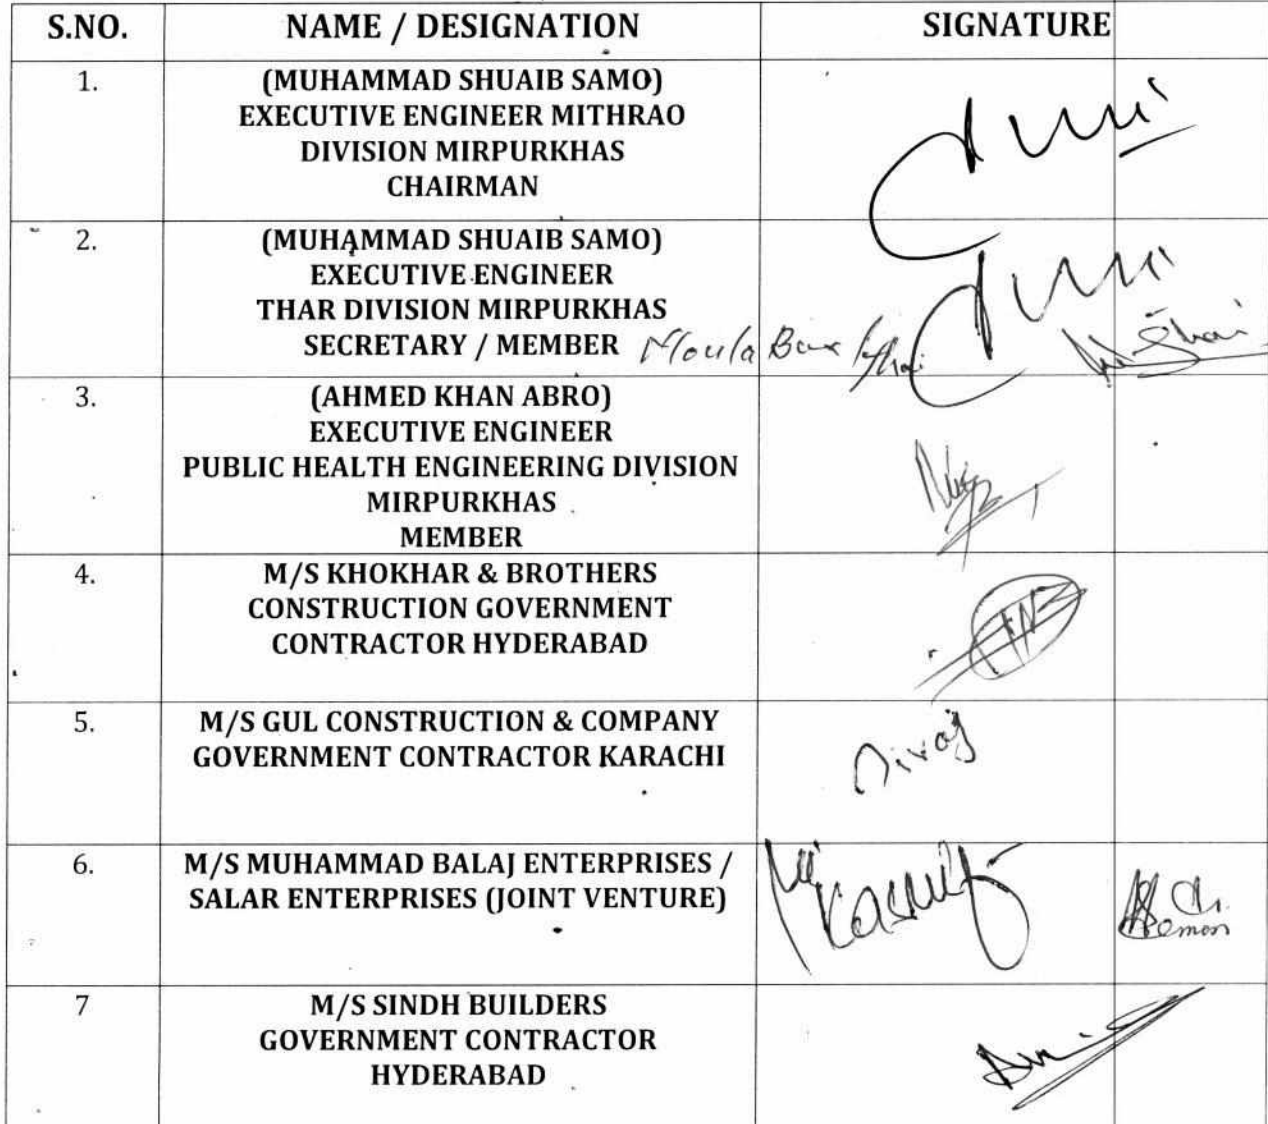 S.NO. NAME / DESIGNATION SIGNATURE
1. (MUHAMMAD SHUAIB SAMO)
EXECUTIVE ENGINEER MITHRAO
DIVISION MIRPURKHAS
CHAIRMAN
2. (MUHAMMAD SHUAIB SAMO)
EXECUTIVE ENGINEER
THAR DIVISION MIRPURKHAS
SECRETARY / MEMBER Moula Bux
3. (AHMED KHAN ABRO)
EXECUTIVE ENGINEER
PUBLIC HEALTH ENGINEERING DIVISION
MIRPURKHAS
MEMBER
4. M/S KHOKHAR & BROTHERS
CONSTRUCTION GOVERNMENT
CONTRACTOR HYDERABAD
5. M/S GUL CONSTRUCTION & COMPANY
GOVERNMENT CONTRACTOR KARACHI
6. M/S MUHAMMAD BALAJ ENTERPRISES /
SALAR ENTERPRISES (JOINT VENTURE)
7 M/S SINDH BUILDERS
GOVERNMENT CONTRACTOR
HYDERABAD